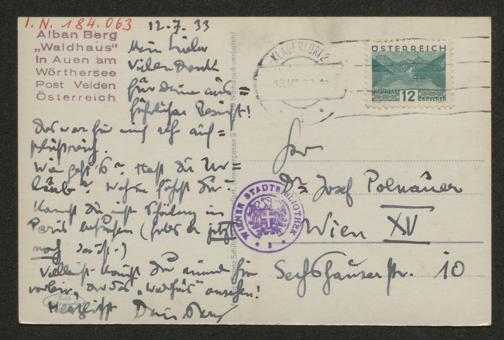 I.N. 184.063
12.7.33
Alban Berg
„Waldhaus"
In Auen am
Wörthersee
Post Velden
Österreich
Mein Lieber
Vielen Dank
für Deine aus=
führlichen Bericht!
Das war für mich sehr auf=
schlußreich.
Wie geht's? Hast Du Ur=
laub? Wohin fährst Du?
Kannst Du mit Schönberg in
Paris (falls er jetzt
noch dort ist.)
Vielleicht kannst Du einmal hier
vorbei, Dir das „Waldhaus" ansehen!
Herzlichst Dein Berg
KLAGENFURT 2
ÖSTERREICH
12 GROSCHEN
WIENER STADTBIBLIOTHEK
Herrn
Dr. Josef Polnauer
Wien XV
Sechshauserstr. 10